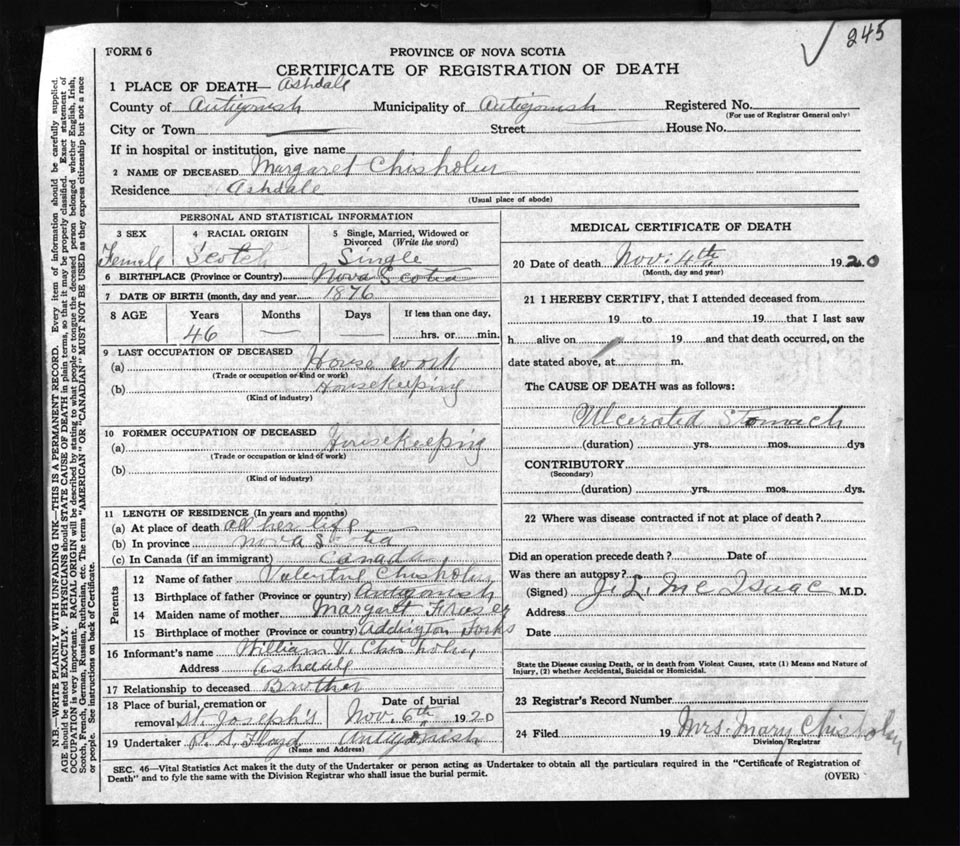 245
FORM 6
PROVINCE OF NOVA SCOTIA
CERTIFICATE OF REGISTRATION OF DEATH
1 PLACE OF DEATH— Ashdale
County of Antigonish Municipality of Antigonish Registered No.
(For use of Registrar General only)
City or Town Street House No.
If in hospital or institution, give name
2 NAME OF DECEASED Margaret Chisholm
Residence Ashdale
(Usual place of abode)
PERSONAL AND STATISTICAL INFORMATION
3 SEX 4 RACIAL ORIGIN 5 Single, Married, Widowed or
Divorced (Write the word)
Female Scotch Single
6 BIRTHPLACE (Province or Country) Nova Scotia
7 DATE OF BIRTH (month, day and year) 1876
8 AGE Years Months Days If less than one day,
46 — — hrs. or min.
9 LAST OCCUPATION OF DECEASED
(a) House work
(Trade or occupation or kind of work)
(b) Housekeeping
(Kind of industry)
10 FORMER OCCUPATION OF DECEASED
(a) Housekeeping
(Trade or occupation or kind of work)
(b)
(Kind of industry)
11 LENGTH OF RESIDENCE (In years and months)
(a) At place of death all her life
(b) In province Nova Scotia
(c) In Canada (if an immigrant) Canada
Parents
12 Name of father Valentine Chisholm
13 Birthplace of father (Province or country) Antigonish
14 Maiden name of mother Margaret Fraser
15 Birthplace of mother (Province or country) Addington Forks
16 Informant's name William V. Chisholm
Address Ashdale
17 Relationship to deceased Brother
18 Place of burial, cremation or Date of burial
removal St. Joseph's Nov. 6th 1920
19 Undertaker P. S. Floyd Antigonish
(Name and Address)
MEDICAL CERTIFICATE OF DEATH
20 Date of death Nov. 4th 1920
(Month, day and year)
21 I HEREBY CERTIFY, that I attended deceased from
19 to 19 that I last saw
h alive on 19 and that death occurred, on the
date stated above, at m.
The CAUSE OF DEATH was as follows:
Ulcerated Stomach
(duration) yrs. mos. dys
CONTRIBUTORY
(Secondary)
(duration) yrs. mos. dys.
22 Where was disease contracted if not at place of death?
Did an operation precede death? Date of
Was there an autopsy?
(Signed) J. L. McIsaac M.D.
Address
Date
State the Disease causing Death, or in death from Violent Causes, state (1) Means and Nature of
Injury, (2) whether Accidental, Suicidal or Homicidal.
23 Registrar's Record Number
24 Filed 19 Mrs. Mary Chisholm
Division Registrar
SEC. 46—Vital Statistics Act makes it the duty of the Undertaker or person acting as Undertaker to obtain all the particulars required in the "Certificate of Registration of
Death" and to fyle the same with the Division Registrar who shall issue the burial permit.
(OVER)
N.B.—WRITE PLAINLY WITH UNFADING INK—THIS IS A PERMANENT RECORD. Every item of information should be carefully supplied.
AGE should be stated EXACTLY. PHYSICIANS should STATE CAUSE OF DEATH in plain terms, so that it may be properly classified. Exact statement of
OCCUPATION is very important. RACIAL ORIGIN will be described by stating to what people or tongue the deceased person belonged whether English, Irish,
Scotch, French, German, Russian, Ruthenian, etc. The terms "AMERICAN" OR "CANADIAN" MUST NOT BE USED as they express citizenship but not a race
or people. See instructions on back of Certificate.